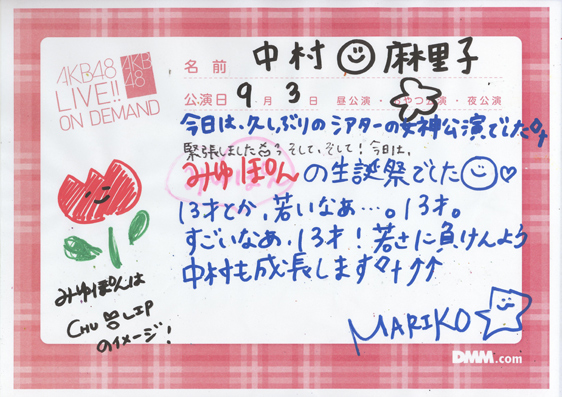 AKB48
LIVE!!
ON DEMAND
AKB
48
名前 中村 麻里子
公演日 9月3日 昼公演・おやつ公演・夜公演
今日は、久しぶりのシアターの女神公演でした
緊張しました そして、そして!今日は、
みゆぽんの生誕祭でした♡
13才とか、若いなぁ…。13才。
すごいなぁ、13才!若さに負けんよう
中村も成長します↑↑
みゆぽんは
CHU LIP
のイメージ!
MARIKO
DMM.com